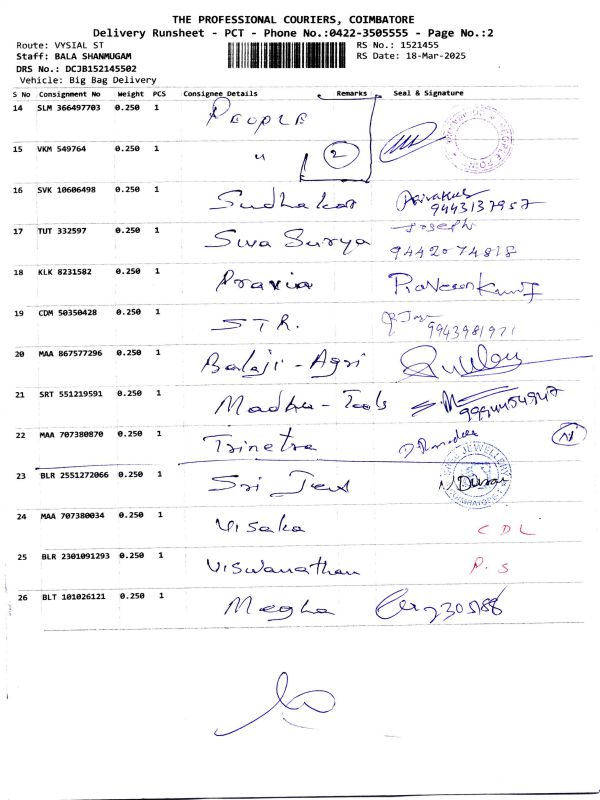 THE PROFESSIONAL COURIERS, COIMBATORE
Delivery Runsheet - PCT - Phone No.:0422-3505555 - Page No.:2
Route: VYSIAL ST RS No.: 1521455
Staff: BALA SHANMUGAM RS Date: 18-Mar-2025
DRS No.: DCJB152145502
Vehicle: Big Bag Delivery
S No Consignment No Weight PCS Consignee Details Remarks Seal & Signature
14 SLM 366497703 0.250 1 PEOPLE
15 VKM 549764 0.250 1 " 2
16 SVK 10606498 0.250 1 Sudhakar
9443137957
17 TUT 332597 0.250 1 Siva Surya Joseph
9442074818
18 KLK 8231582 0.250 1 Pravin
19 CDM 50350428 0.250 1 STR.
9943981971
20 MAA 867577296 0.250 1 Balaji-Agri
21 SRT 551219591 0.250 1 Madhu-Tools
22 MAA 707380870 0.250 1 Trinetra
23 BLR 2551272066 0.250 1 Sri Jewel
24 MAA 707380034 0.250 1 Visaka CDL
25 BLR 2301091293 0.250 1 Viswanathan P.S
26 BLT 101026121 0.250 1 Megha